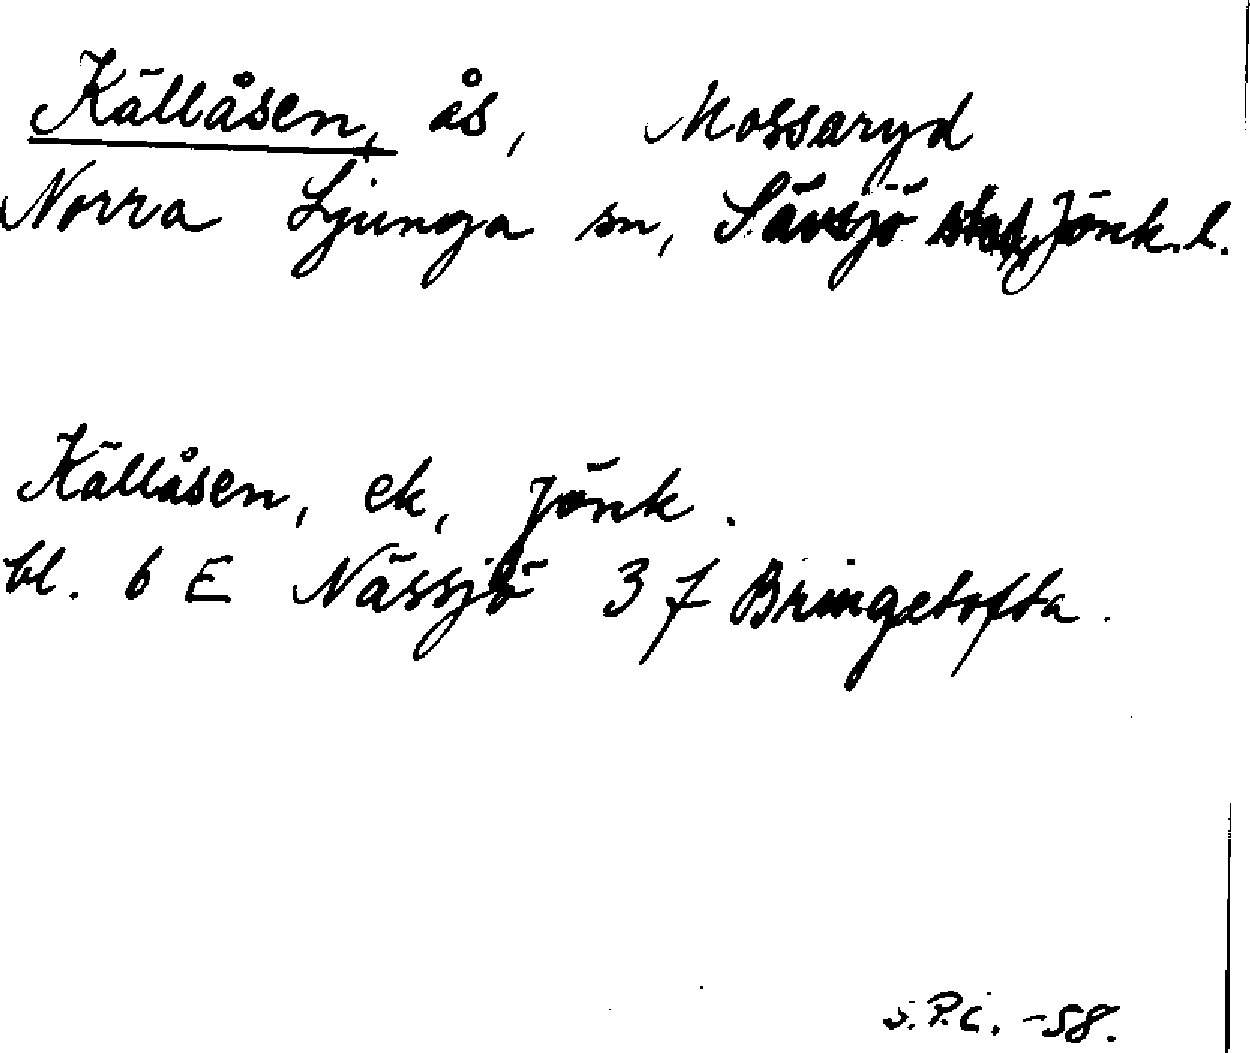 Källåsen, ås, Mossaryd
Norra Ljunga sn, Sävsjö stad, Jönk. l.
Källåsen, ek, Jönk.
bl. 6 E Nässjö 3 f Bringetofta.
S.P.C. -58.